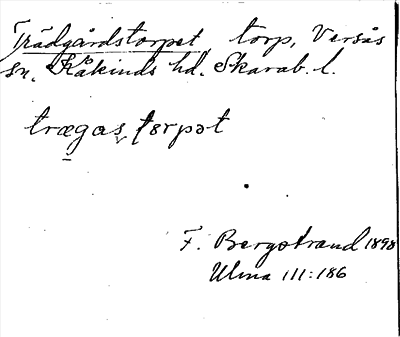 Trädgårdstorpet, torp, Versås
sn. Kåkinds hd. Skarab. l.
trægas torpət
F. Bergstrand 1898
Ulma III:186